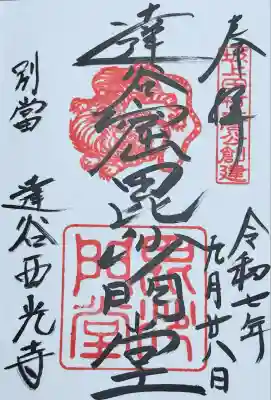 奉拝
令和七年
九月廿八日
達谷窟毘沙門堂
別當
達谷西光寺